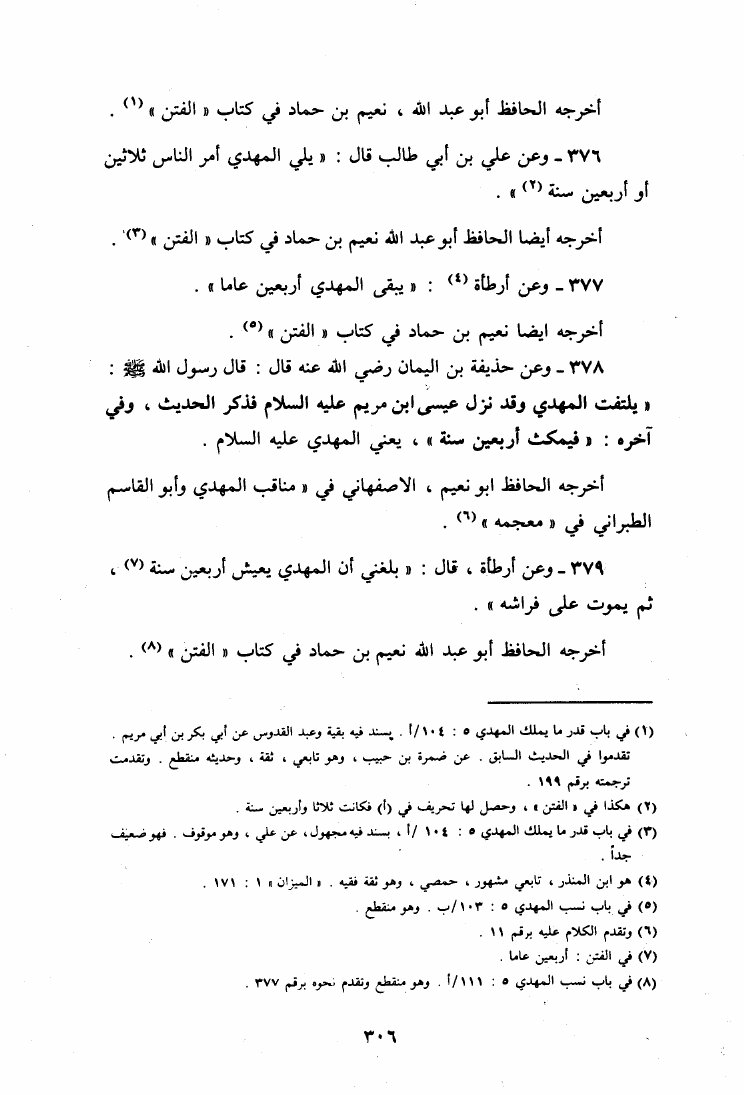 أخرجه الحافظ أبو عبد الله ، نعيم بن حماد في كتاب « الفتن » (١) .
٣٧٦ ـ وعن علي بن أبي طالب قال : « يلي المهدي أمر الناس ثلاثين
أو أربعين سنة (٢) » .
أخرجه أيضا الحافظ أبو عبد الله نعيم بن حماد في كتاب « الفتن » (٣) .
٣٧٧ ـ وعن أرطأة (٤) : « يبقى المهدي أربعين عاما » .
أخرجه ايضا نعيم بن حماد في كتاب « الفتن » (٥) .
٣٧٨ ـ وعن حذيفة بن اليمان رضي الله عنه قال : قال رسول الله ﷺ :
« يلتفت المهدي وقد نزل عيسى ابن مريم عليه السلام فذكر الحديث ، وفي
آخره : « فيمكث أربعين سنة » ، يعني المهدي عليه السلام .
أخرجه الحافظ ابو نعيم ، الاصفهاني في « مناقب المهدي وأبو القاسم
الطبراني في « معجمه » (٦) .
٣٧٩ ـ وعن أرطأة ، قال : « بلغني أن المهدي يعيش أربعين سنة (٧) ،
ثم يموت على فراشه » .
أخرجه الحافظ أبو عبد الله نعيم بن حماد في كتاب « الفتن » (٨) .
(١) في باب قدر ما يملك المهدي ٥ : ١٠٤/أ . بسند فيه بقية وعبد القدوس عن أبي بكر بن أبي مريم .
تقدموا في الحديث السابق . عن ضمرة بن حبيب ، وهو تابعي ، ثقة ، وحديثه منقطع . وتقدمت
ترجمته برقم ١٩٩ .
(٢) هكذا في « الفتن » ، وحصل لها تحريف في (أ) فكانت ثلاثا وأربعين سنة .
(٣) في باب قدر ما يملك المهدي ٥ : ١٠٤ /أ ، بسند فيه مجهول، عن علي ، وهو موقوف . فهو ضعيف
جداً .
(٤) هو ابن المنذر ، تابعي مشهور ، حمصي ، وهو ثقة فقيه . « الميزان » ١ : ١٧١ .
(٥) في باب نسب المهدي ٥ : ١٠٣/ب . وهو منقطع .
(٦) وتقدم الكلام عليه برقم ١١ .
(٧) في الفتن : أربعين عاما .
(٨) في باب نسب المهدي ٥ : ١١١/أ . وهو منقطع وتقدم نحوه برقم ٣٧٧ .
٣٠٦